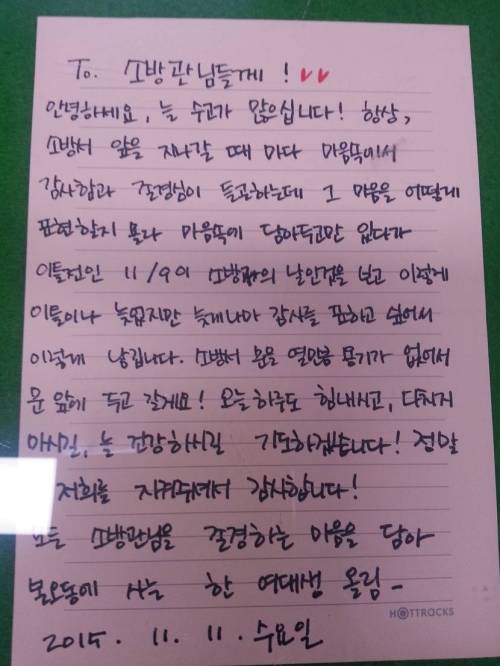 To. 소방관님들께!
안녕하세요, 늘 수고가 많으십니다! 항상,
소방서 앞을 지나갈 때 마다 마음속에서
감사함과 존경심이 들곤하는데 그 마음을 어떻게
표현할지 몰라 마음속에 담아두고만 있다가
이틀전인 11/9이 소방관의 날인걸 보고 이렇게
이틀이나 늦었지만 늦게나마 감사를 표하고 싶어서
이렇게 남깁니다. 소방서 문을 열만큼 용기가 없어서
문 앞에 두고 갈게요! 오늘 하루도 힘내시고, 다치지
마시길, 늘 건강하시길 기도하겠습니다! 정말
저희를 지켜주셔서 감사합니다!
모든 소방관님을 존경하는 마음을 담아
불로동에 사는 한 여대생 올림-
HOTTRACKS
2015. 11. 11. 수요일